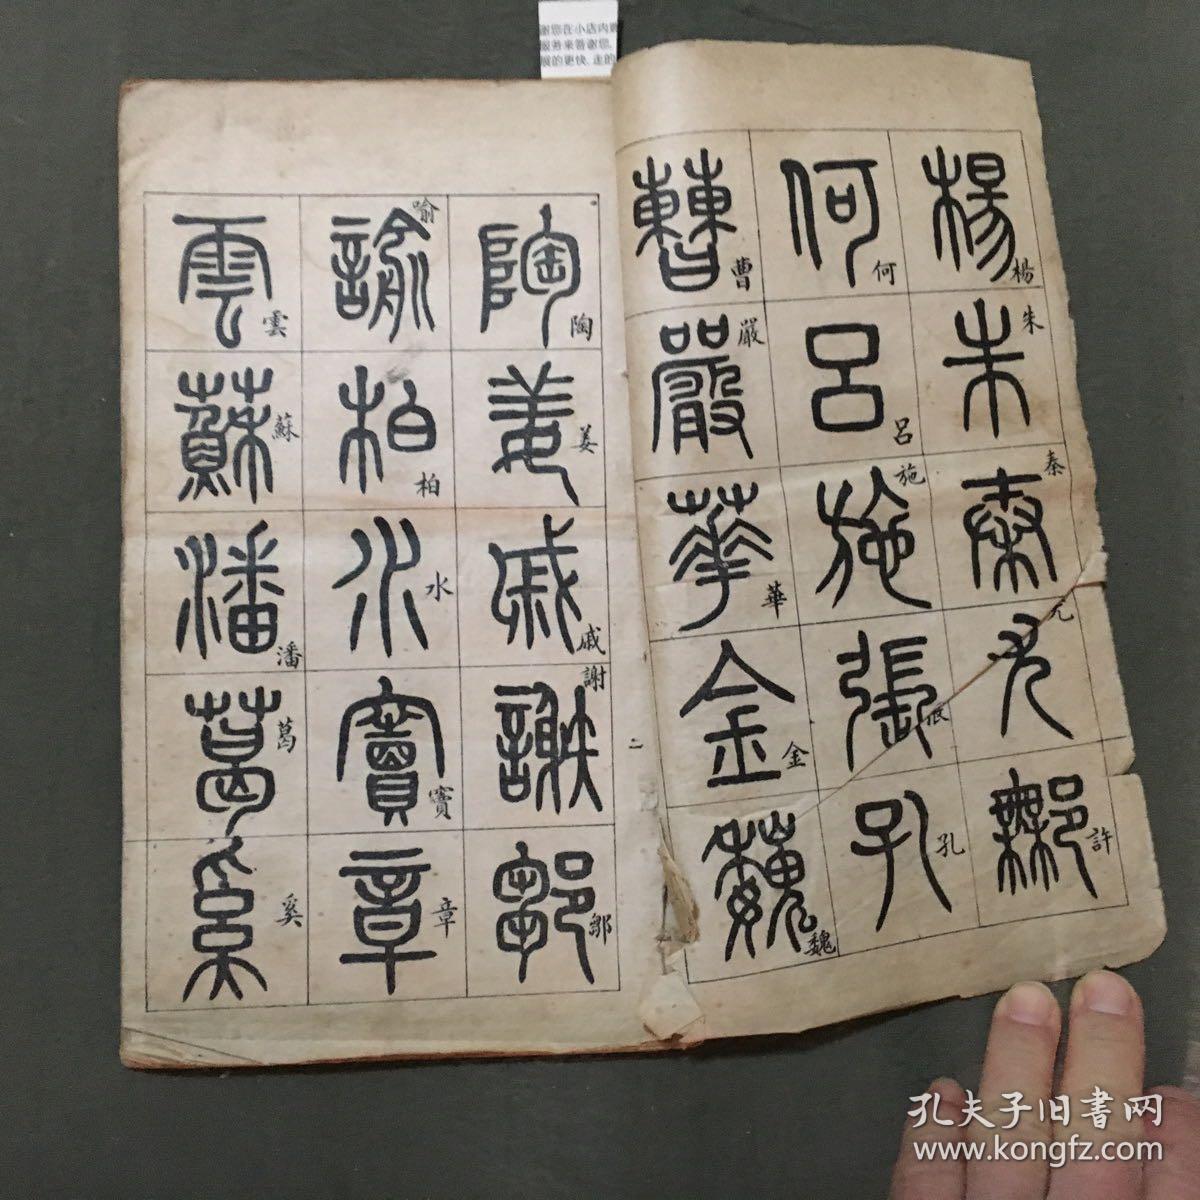 谢您在小店内
服务来答谢您,
展的更快,走的
楊楊朱朱秦秦尤尤許許
何何呂呂施施張張孔孔
曹曹嚴嚴華華金金魏魏
二
陶陶姜姜戚戚謝謝鄒鄒
諭喻柏柏水水竇竇章章
雲雲蘇蘇潘潘葛葛奚奚
孔夫子旧书网
www.kongfz.com